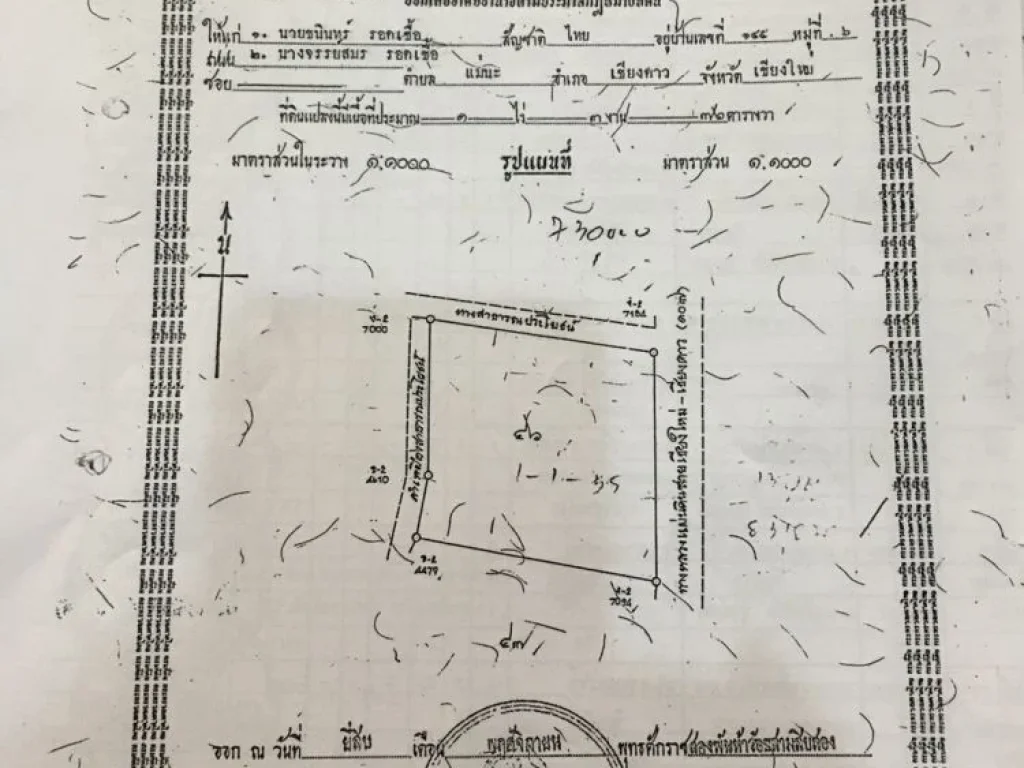 ให้แก่ ๑. นายชนินทร์ รอดเชื้อ สัญชาติ ไทย อยู่บ้านเลขที่ ๑๔๕ หมู่ที่ ๖
๒. นางจรรยสมร รอดเชื้อ
ซอย ตำบล แม่นะ อำเภอ เชียงดาว จังหวัด เชียงใหม่
ที่ดินแปลงนี้มีเนื้อที่ประมาณ ๑ ไร่ ๓ งาน ตารางวา
มาตราส่วนในระวาง ๑:๑๐๐๐ รูปแผนที่ มาตราส่วน ๑:๑๐๐๐
น
ทางสาธารณประโยชน์
7000
ลำเหมืองสาธารณประโยชน์
ทางหลวงแผ่นดินสายเชียงใหม่ - เชียงดาว (๑๐๗)
๔๖
1-1-55
๔๗
ออก ณ วันที่ ยี่สิบ เดือน พฤศจิกายน พุทธศักราชสองพันห้าร้อยสามสิบสอง